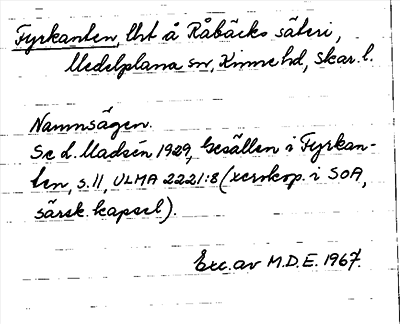 Fyrkanten, lht å Råbäcks säteri,
Medelplana sn, Kinne hd, Skar. l.
Namnsägen.
Se L. Madsén 1929, Gesällen i Fyrkan-
ten, s. 11, ULMA 2221:8 (xerokop. i SOA,
särsk. kapsel).
Exc. av M.D.E. 1967.